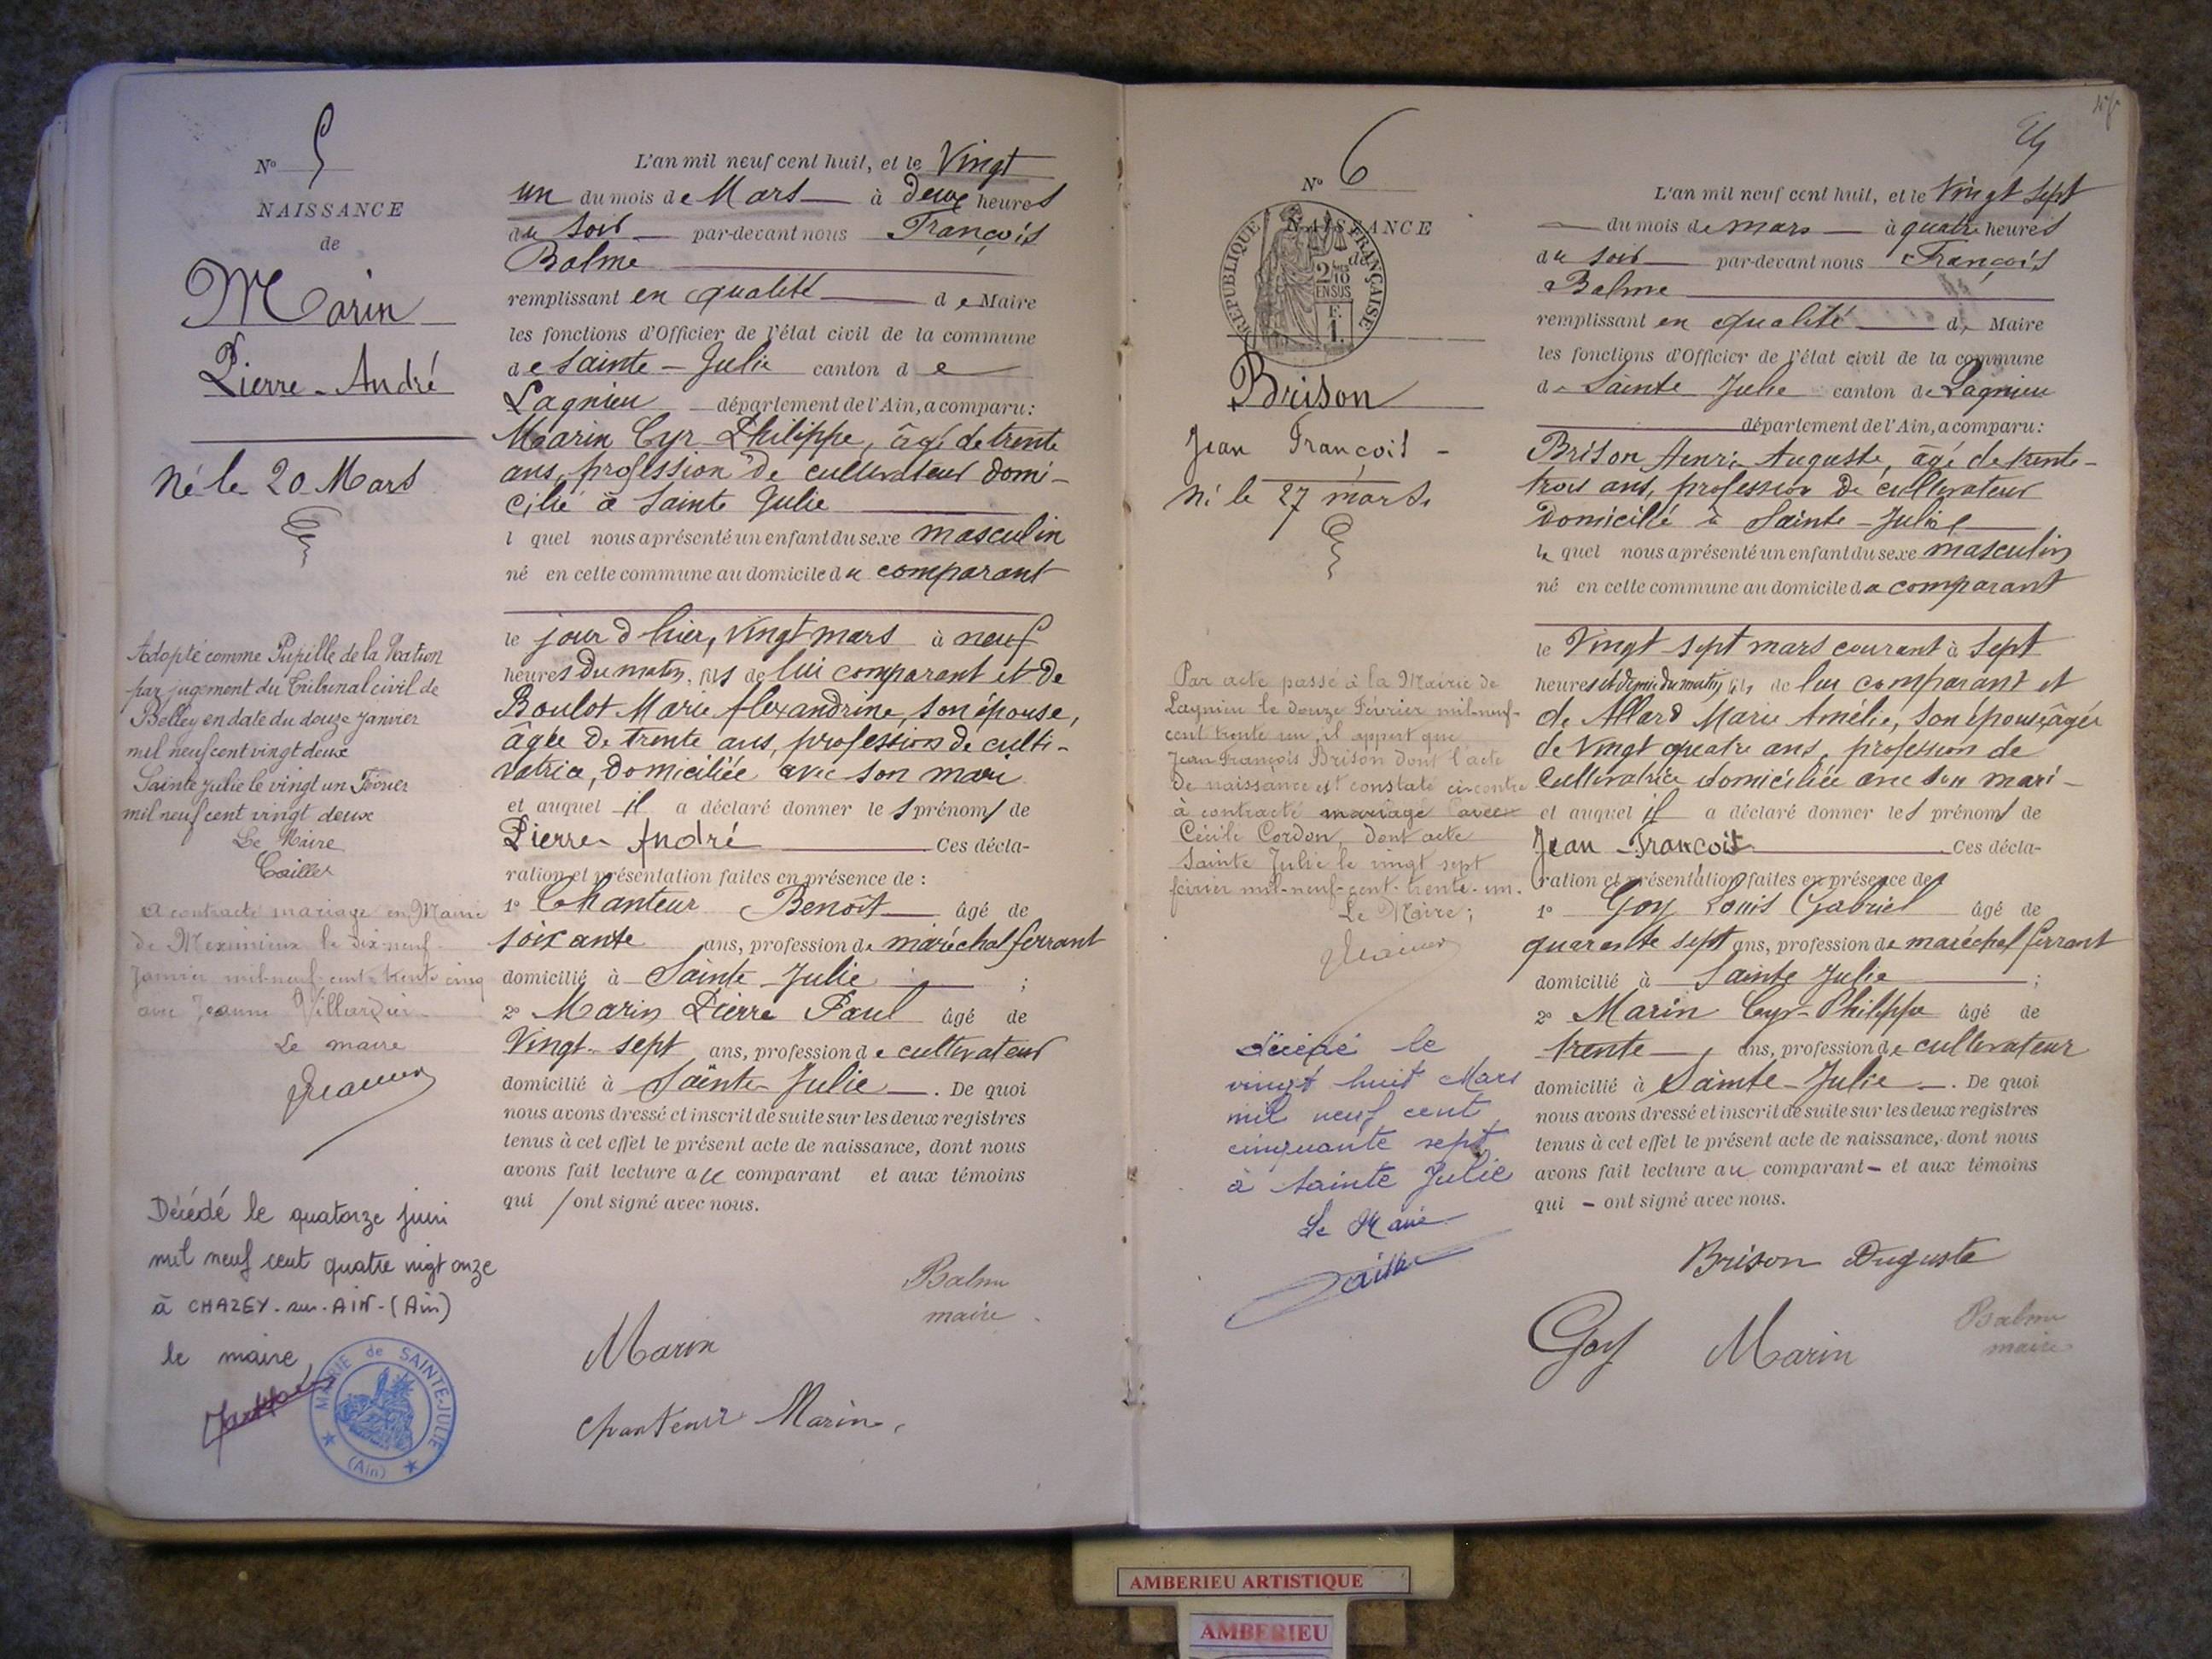 N° 5
NAISSANCE
de
Marin
Pierre-André
Né le 20 Mars
Adopté comme Pupille de la Nation
par jugement du Tribunal civil de
Belley en date du douze Janvier
mil neuf cent vingt deux
Sainte Julie le vingt un Février
mil neuf cent vingt deux
Le Maire
A contracté mariage en Mairie
de Meximieux le dix-neuf
Janvier mil-neuf-cent-trente cinq
avec Jeanne
Le maire
Décédé le quatorze juin
mil neuf cent quatre vingt onze
à CHAZEY-sur-AIN-(Ain)
le maire,
MAIRIE de SAINTE-JULIE
(Ain)
L'an mil neuf cent huit, et le Vingt
un du mois de Mars à deux heures
du soir par-devant nous François
Balme
remplissant en qualité de Maire
les fonctions d'Officier de l'état civil de la commune
de Sainte-Julie canton de
Lagnieu département de l'Ain, a comparu:
Marin Cyr-Philippe, âgé de trente
ans, profession de cultivateur domi-
cilié à Sainte Julie
l quel nous a présenté un enfant du sexe masculin
né en cette commune au domicile du comparant
le jour d'hier, vingt mars à neuf
heures du matin, fils de lui comparant et de
Boulot Marie Alexandrine, son épouse,
âgée de trente ans, profession de culti-
vatrice, domiciliée avec son mari
et auquel il a déclaré donner les prénoms de
Pierre-André Ces décla-
ration et présentation faites en présence de :
1° Chanteur Benoît âgé de
soixante ans, profession de maréchal ferrant
domicilié à Sainte-Julie ;
2° Marin Pierre Paul âgé de
Vingt-sept ans, profession de cultivateur
domicilié à Sainte-Julie . De quoi
nous avons dressé et inscrit de suite sur les deux registres
tenus à cet effet le présent acte de naissance, dont nous
avons fait lecture au comparant et aux témoins
qui ont signé avec nous.
Balme
maire
Marin
Chanteur Marin
N° 6
NAISSANCE
de
REPUBLIQUE FRANÇAISE
2/10
EN SUS
F.
1.
Brison
Jean François -
Né le 27 mars
Par acte passé à la Mairie de
Lagnieu le douze Février mil-neuf-
cent trente un, il appert que
Jean François Brison dont l'acte
de naissance est constaté ci-contre
à contracté mariage avec
Cécile Cordon, dont acte
Sainte Julie le vingt sept
février mil-neuf-cent-trente-un.
Le Maire;
décédé le
vingt huit Mars
mil neuf cent
cinquante sept
à Sainte Julie
Le Maire
L'an mil neuf cent huit, et le Vingt sept
du mois de mars à quatre heures
du soir par-devant nous François
Balme
remplissant en qualité de Maire
les fonctions d'Officier de l'état civil de la commune
de Sainte Julie canton de Lagnieu
département de l'Ain, a comparu:
Brison Henri-Auguste, âgé de trente-
trois ans, profession de cultivateur
domicilié à Sainte-Julie
le quel nous a présenté un enfant du sexe masculin
né en cette commune au domicile du comparant
le Vingt sept mars courant à sept
heures et demie du matin fils de lui comparant et
de Allard Marie Amélie, son épouse, âgée
de vingt quatre ans, profession de
cultivatrice domiciliée avec son mari-
et auquel il a déclaré donner les prénoms de
Jean-François Ces décla-
ration et présentation faites en présence de
1° Goy Louis Gabriel âgé de
quarante sept ans, profession de maréchal ferrant
domicilié à Sainte Julie ;
2° Marin Cyr-Philippe âgé de
trente ans, profession de cultivateur
domicilié à Sainte-Julie . De quoi
nous avons dressé et inscrit de suite sur les deux registres
tenus à cet effet le présent acte de naissance, dont nous
avons fait lecture au comparant - et aux témoins
qui - ont signé avec nous.
Brison Auguste
Goy Marin
Balme
maire
AMBERIEU ARTISTIQUE
AMBERIEU